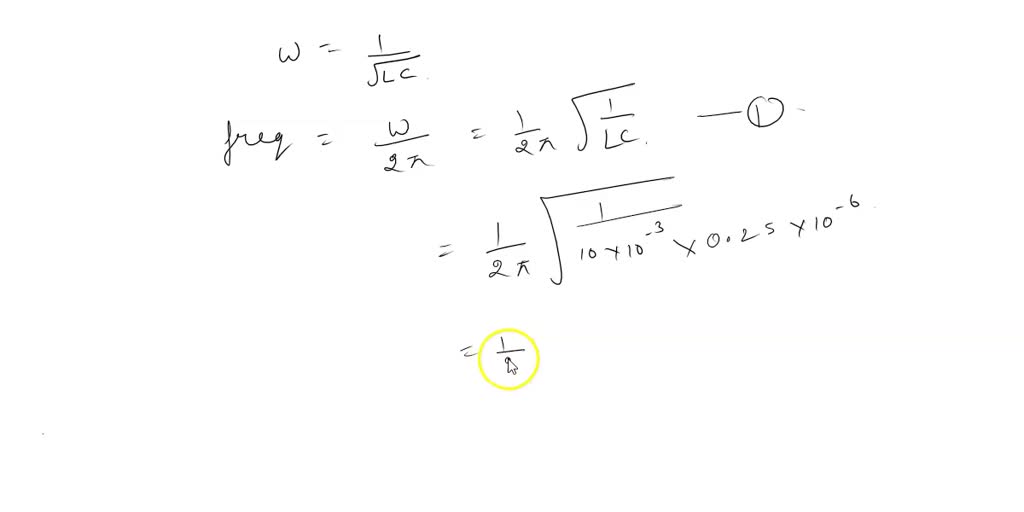 w = 1/√LC.
freq = w/2π = 1/2π √1/LC. — ①
= 1/2π √1/10×10⁻³ × 0.25 × 10⁻⁶
= 1/2